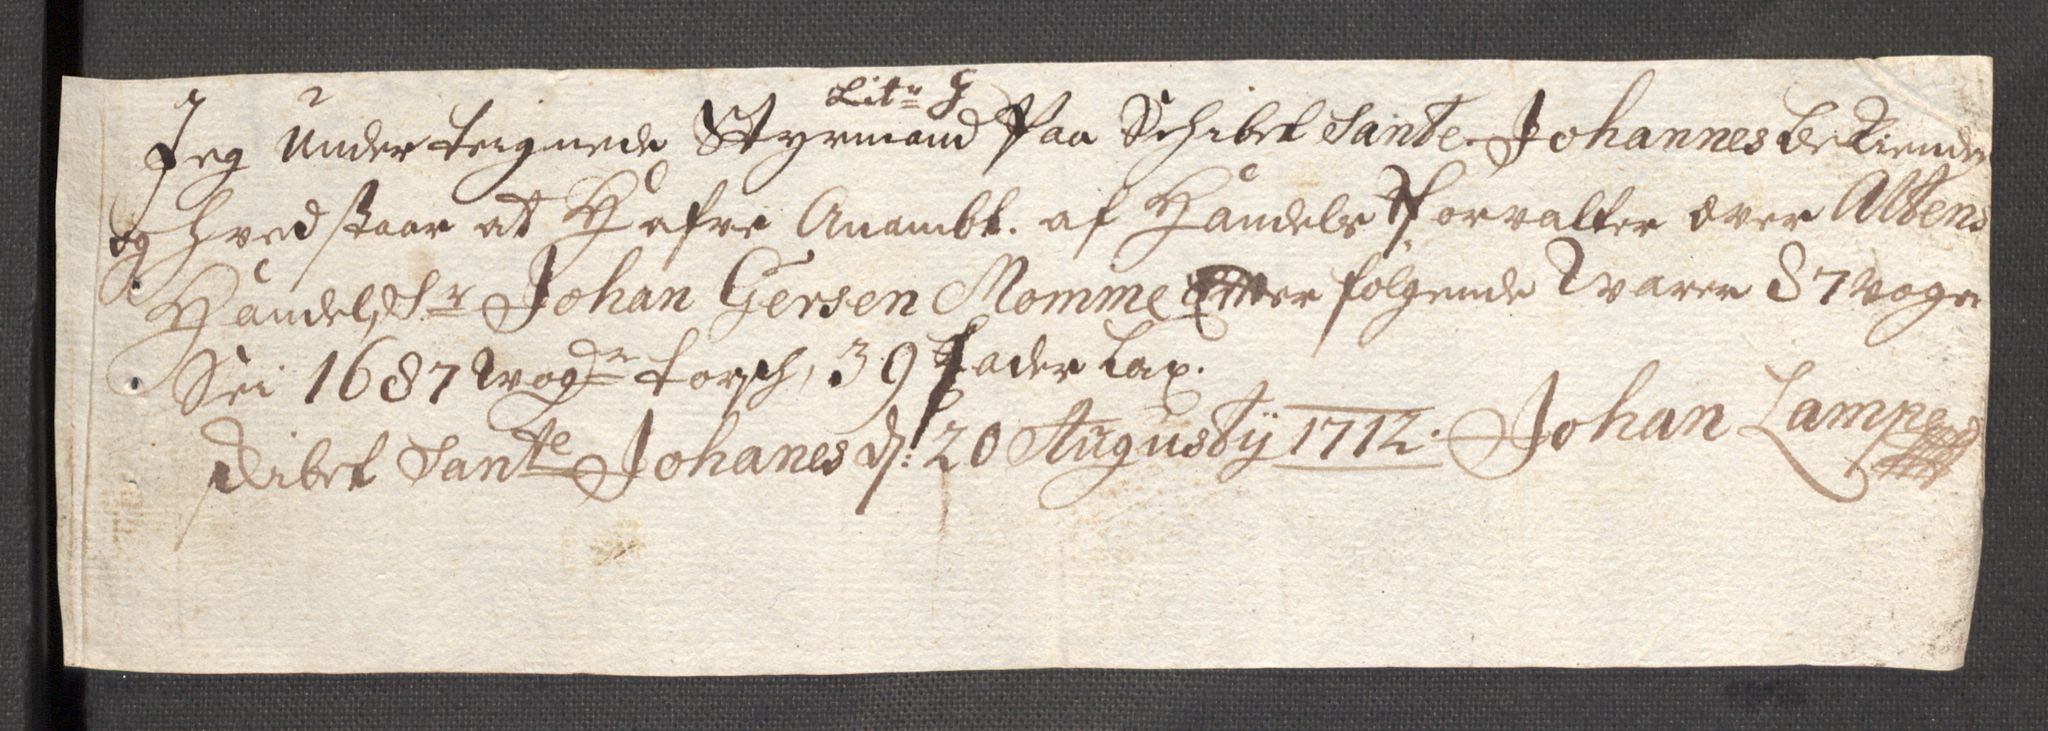 Litr G
Jeg Underteignede Styrmand Paa Schibet Sante Johannes bekiender
og hved staar at Hafve Anambt. af Handels Forvalter over Altens
Handel, Sr Johan Gersen Momme Efter følgende Warer 87 Woger
Sei 1687 Wogr torsch, 39 Fader Lax.
Skibet Sante Johanes d: 20 Augusty 1712. Johan Lampe